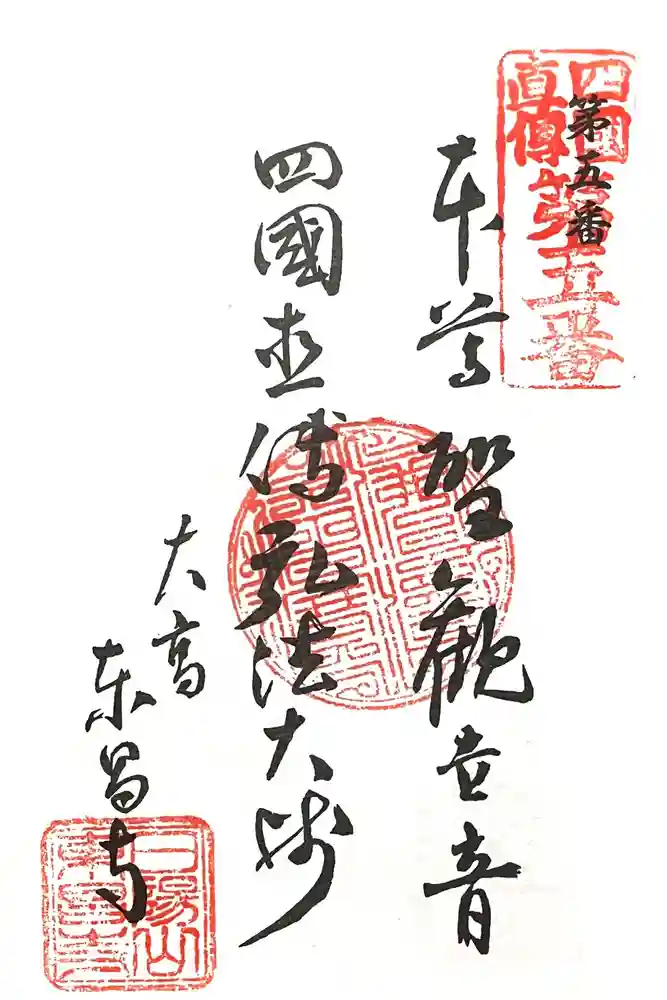 第五番
四國
直傳
第五番
本尊 聖観世音
四國直傳弘法大師
大高
東昌寺